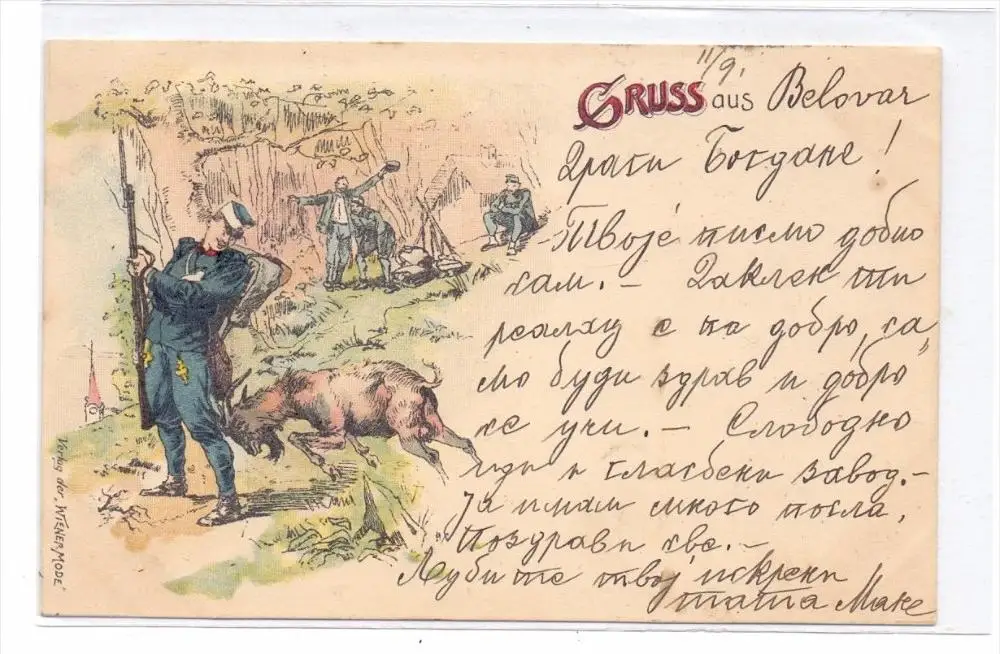 11/9.
GRUSS aus Belovar
Драги Богдане!
Твоје писмо добио
сам. – Даклек ти
реалху е по добро, са„
мо буди здрав и добро
се учи. – Слободно
иди и гласбени завод. –
Ја имам много посла,
Поздрави све. –
Љуби те твој искрени
тата Маке
Verlag der „WIENER MODE"